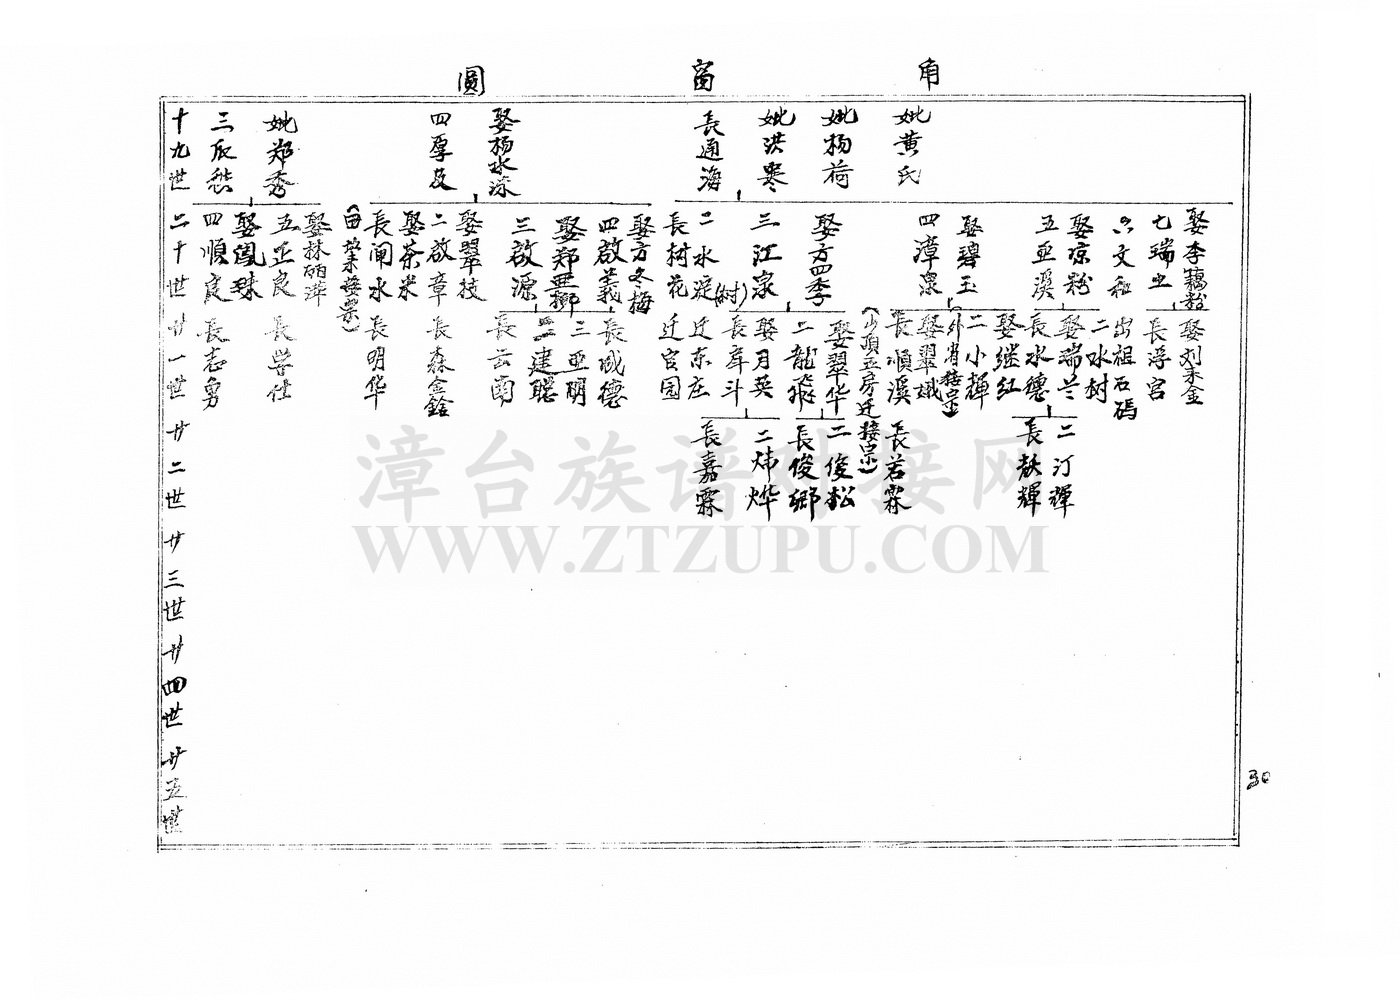 圓 窗 角
十九世
三辰愁
妣郑秀
四厚及
娶杨水涂
長通海
妣洪枣
妣杨荷
妣黄氏
二十世
四順良
娶鳳珠
五正良
娶林丽萍
長闹水
娶茶米
二啟章
娶翠枝
三啟源
娶郑亜娜
四啟義
娶方冬梅
長树花
二水淀
三江泉
娶方四季
四漳泉
娶碧玉
五亜溪
娶琼粉
六文和
七瑞生
娶李藕粉
廿一世
長志勇
長學仕
長明华
長森金銓
長云南
二建聪
三亜明
長城德
迁官园
迁东庄
長库斗
娶月英
二龍飛
娶翠华
長順溪
娶翠娥
(外省接宗)
二小輝
娶继红
長水德
娶瑞兰
二水树
出祖石码
長浮宫
娶刘来金
廿二世
長嘉霖
二炜烨
長俊鄉
二俊松
長若霖
二汀輝
廿三世
廿四世
廿五世
30
漳台族谱对接网
WWW.ZTZUPU.COM